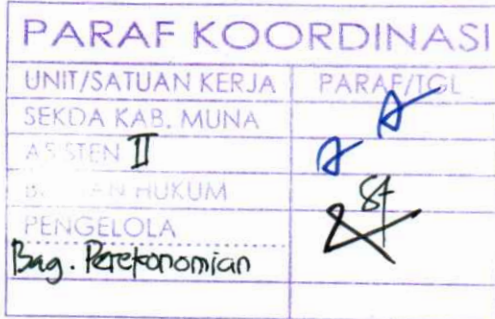 PARAF KOORDINASI
UNIT/SATUAN KERJA PARAF/TGL
SEKDA KAB. MUNA
ASISTEN II
BAGIAN HUKUM
PENGELOLA
Bag. Perekonomian